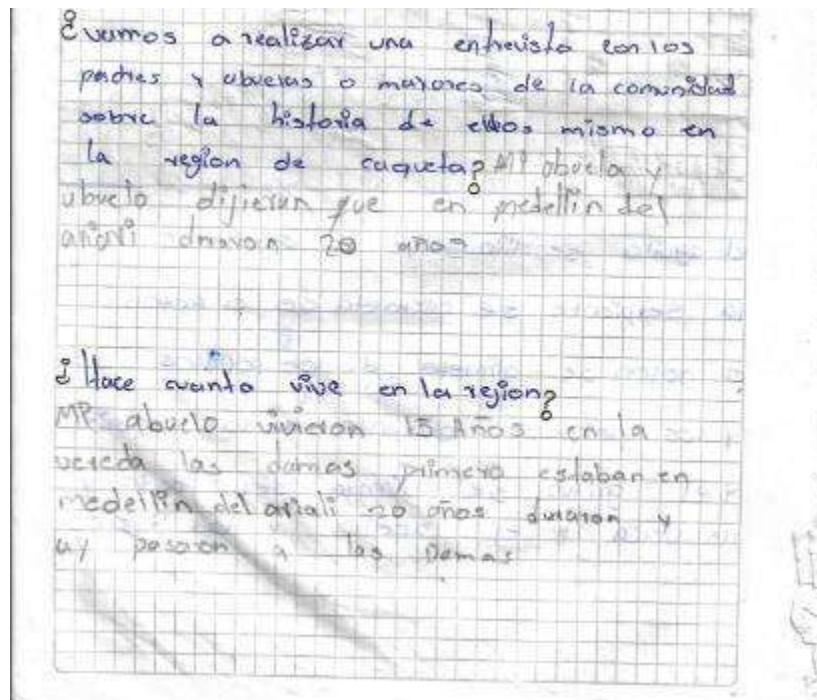 ¿vamos a realizar una entrevista con los
padres y abuelas o mayores de la comunidad
sobre la historia de ellos mismo en
la region de caqueta? MI abuela y
abuelo dijieron que en medellin del
duraron 20 años
¿Hace cuanto vive en la rejion?
MI abuelo vivieron 15 Años en la
vereda las damas primero estaban en
medellin del ariali 20 años duraron y
ay pasaron a las Damas